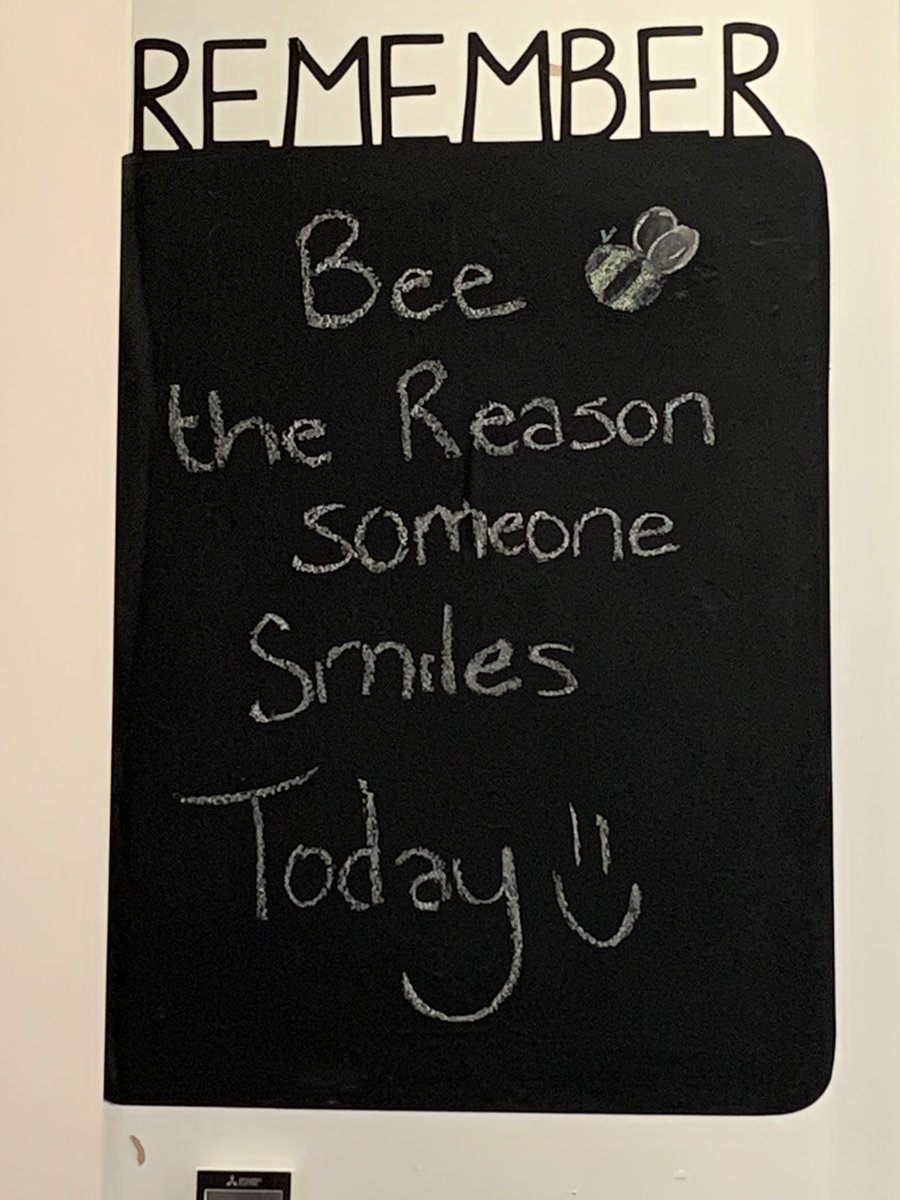 REMEMBER
Bee
the Reason
someone
Smiles
Today